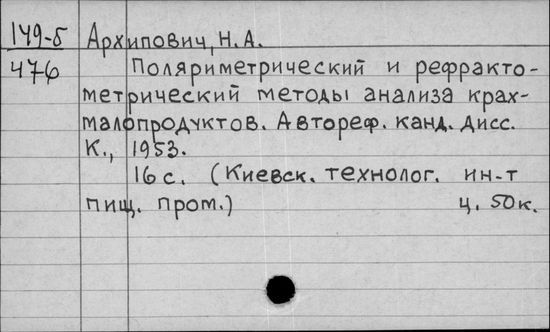 149-б Архипович, Н.А.
476 Поляриметрический и рефракто-
метрический методы анализа крах-
малопродуктов. Автореф. канд. дисс.
К., 1953.
16 с. (Киевск. технолог. ин-т
пищ. пром.) ц. 50 к.